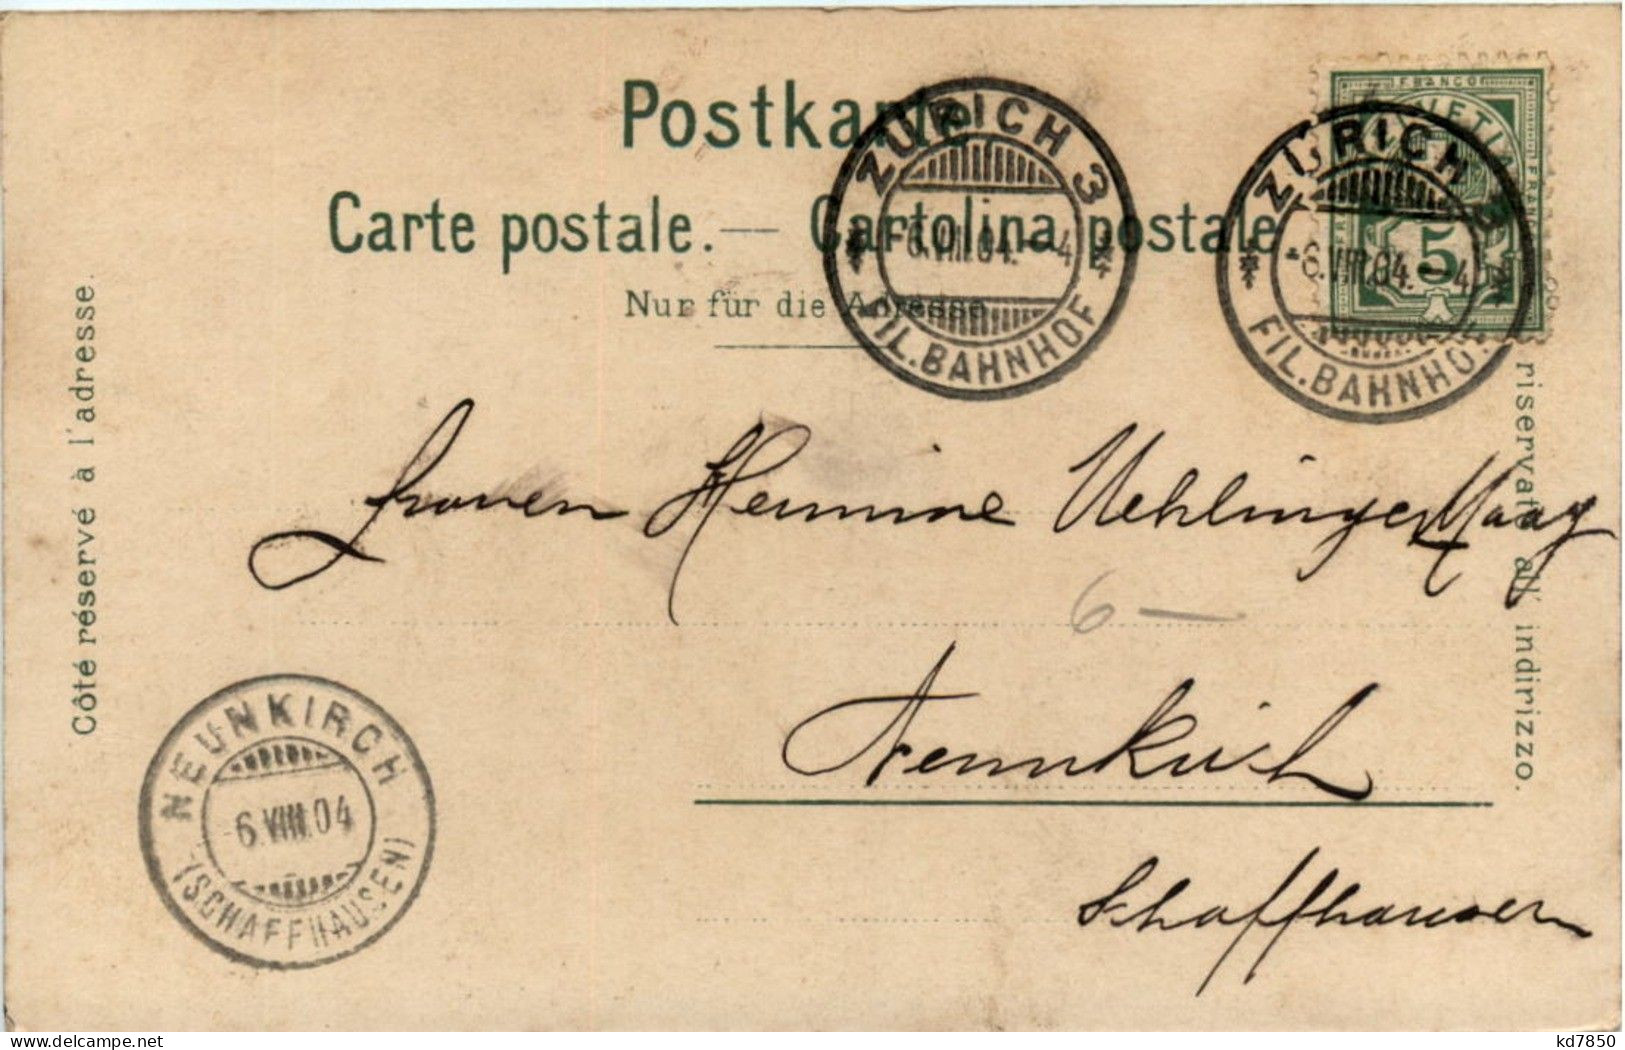 Postkarte
Carte postale. — Cartolina postale
Nur für die Adresse
Côté réservé à l'adresse.
riservato all' indirizzo.
ZÜRICH 3
-6.VIII.04. -4
FIL. BAHNHOF
FRANCO
HELVETIA
5
ZÜRICH 3
-6.VIII.04. -4
FIL. BAHNHOF
Frauen Hermine Uehlinger Maag
6 —
Neunkirch
Schaffhausen
NEUNKIRCH
-6.VIII.04
(SCHAFFHAUSEN)
kd7850